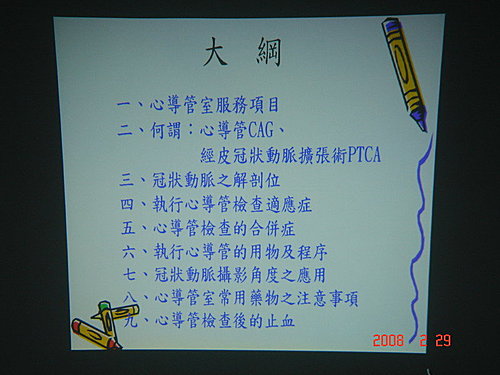 大綱
一、心導管室服務項目
二、何謂：心導管CAG、
經皮冠狀動脈擴張術PTCA
三、冠狀動脈之解剖位
四、執行心導管檢查適應症
五、心導管檢查的合併症
六、執行心導管的用物及程序
七、冠狀動脈攝影角度之應用
八、心導管室常用藥物之注意事項
九、心導管檢查後的止血
2008 2 29